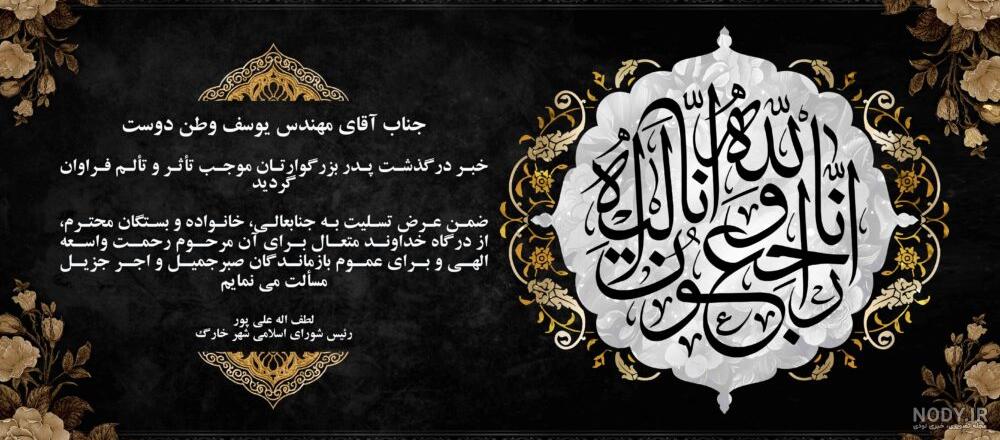 انا لله و انا الیه راجعون
جناب آقای مهندس یوسف وطن دوست
خبر درگذشت پدر بزرگوارتان موجب تأثر و تألم فراوان
گردید
ضمن عرض تسلیت به جنابعالی، خانواده و بستگان محترم،
از درگاه خداوند متعال برای آن مرحوم رحمت واسعه
الهی و برای عموم بازماندگان صبرجمیل و اجر جزیل
مسألت می نمایم
لطف اله علی پور
رئیس شورای اسلامی شهر خارگ
NODY.IR
مجله تصویری، خبری نودی